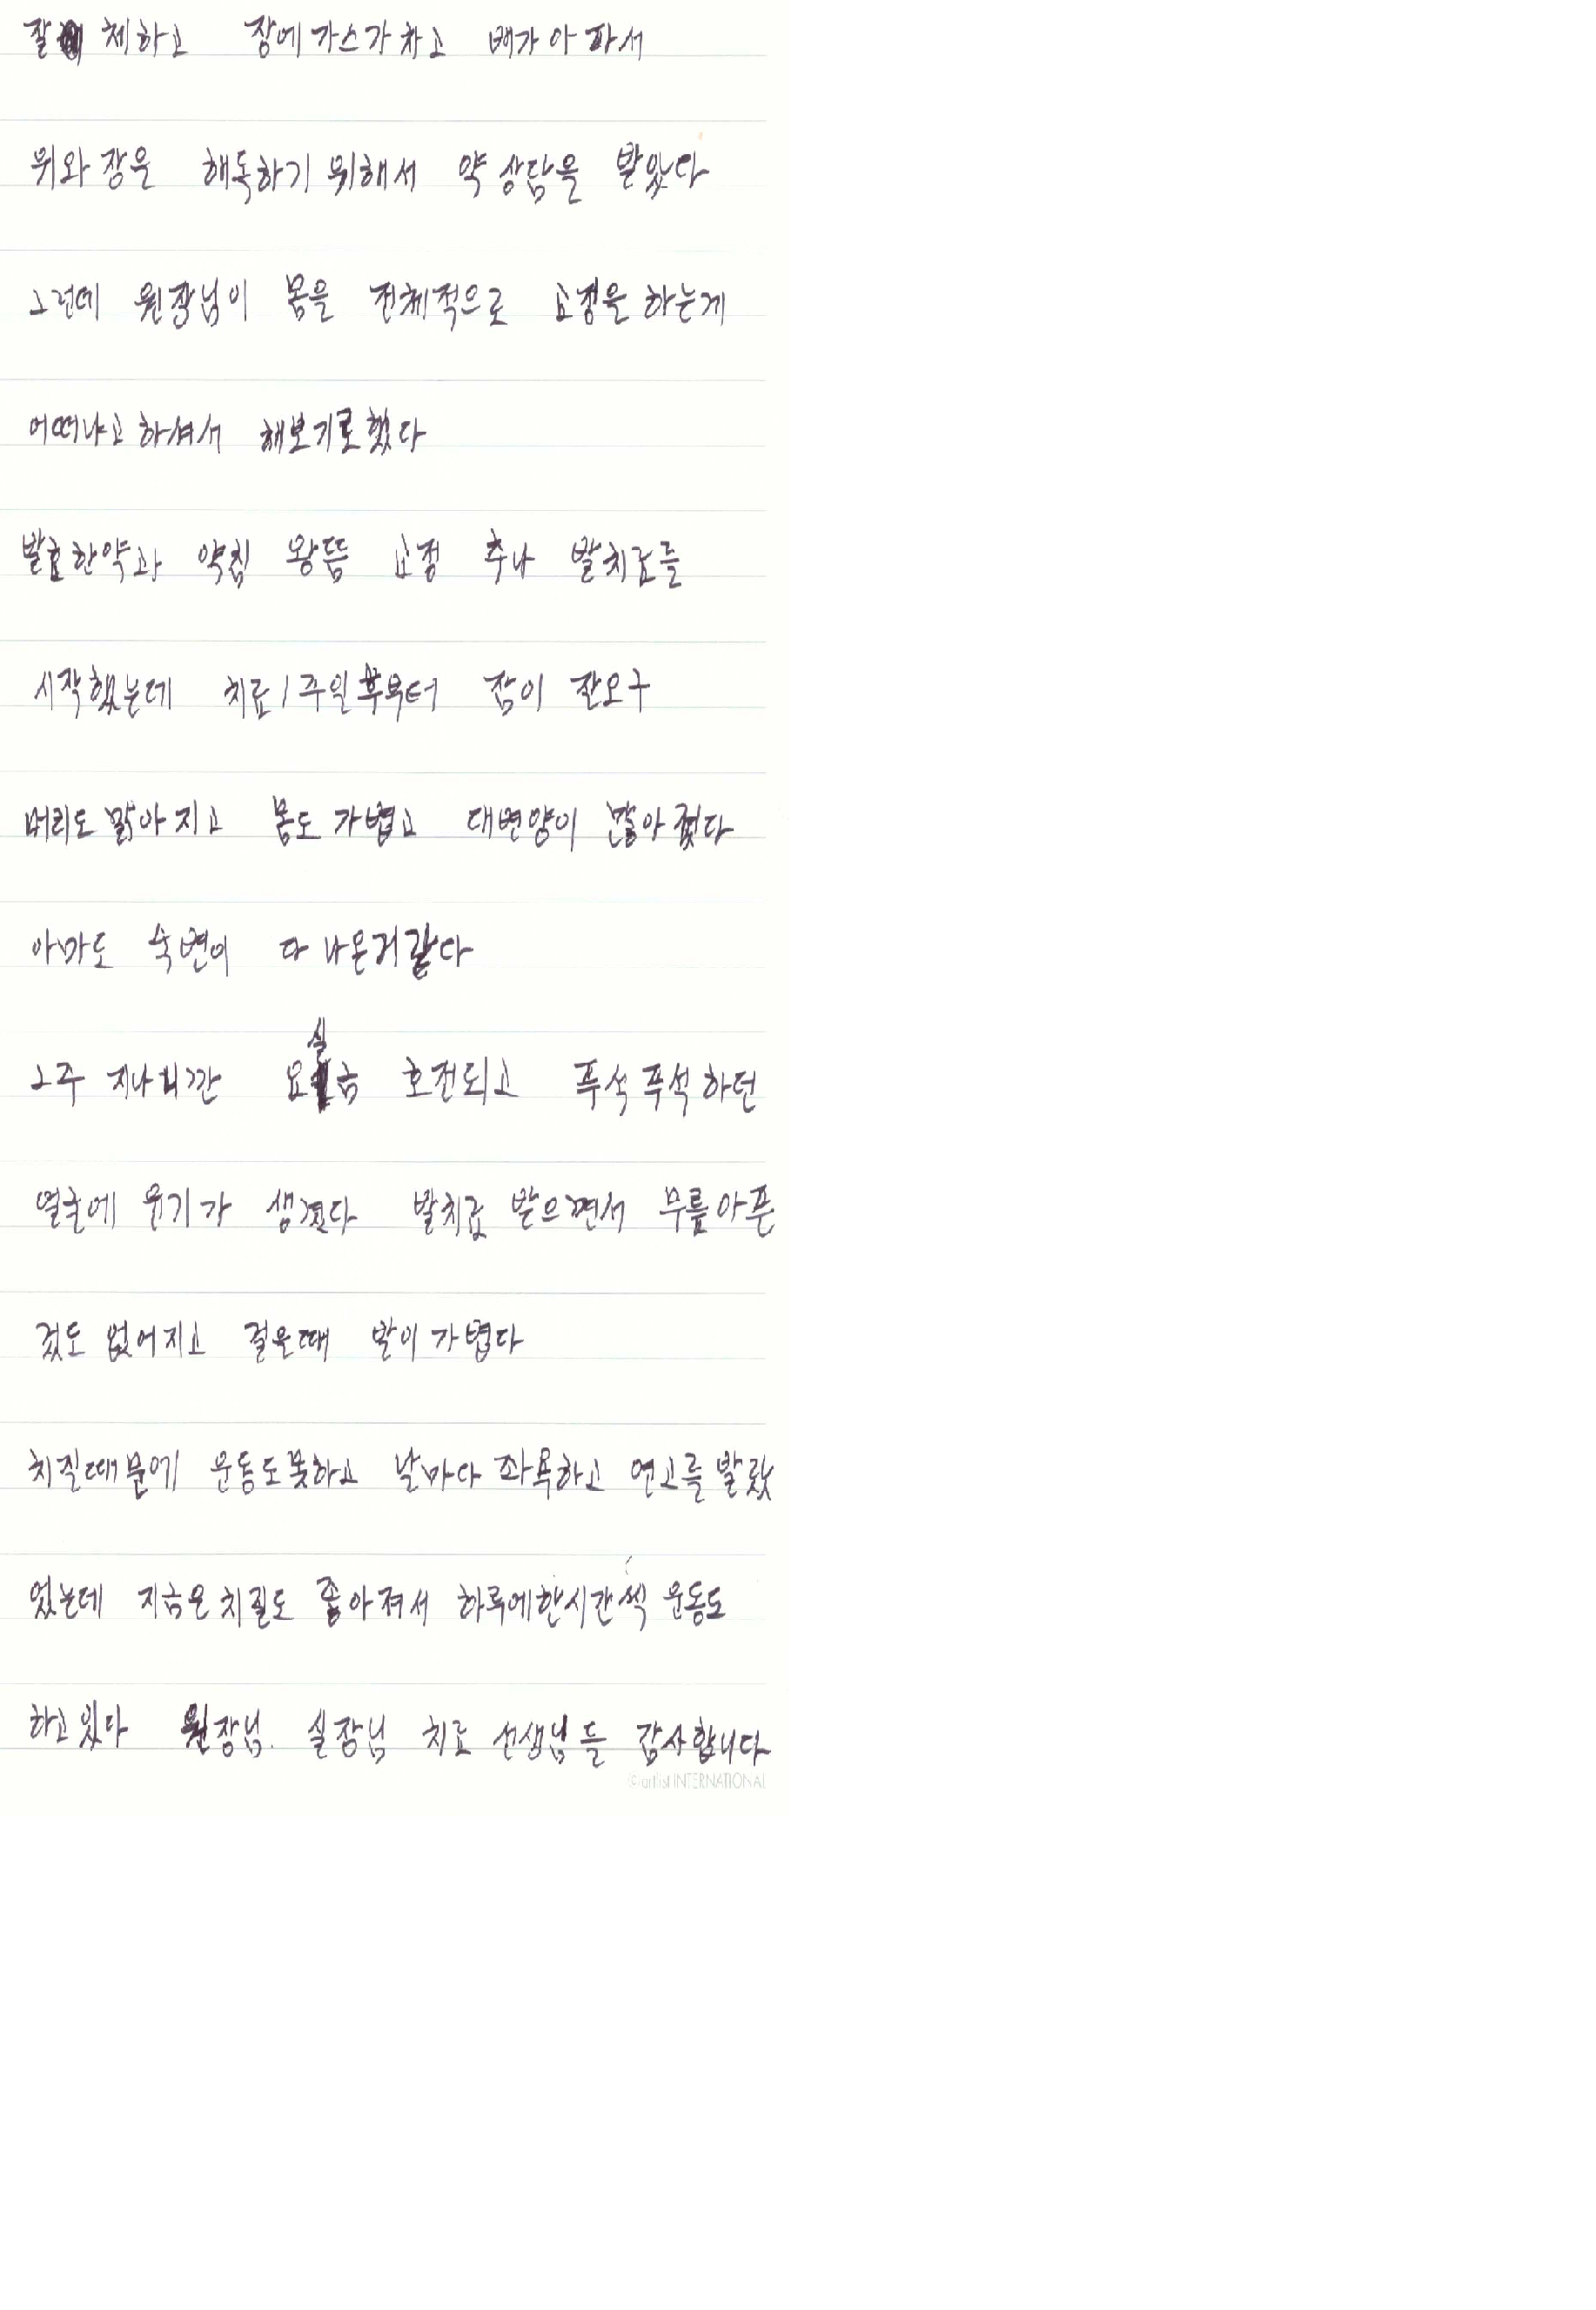 잘 체하고 장에 가스가 차고 배가 아파서
위와 장을 해독하기 위해서 약 상담을 받았다
그런데 원장님이 몸을 전체적으로 교정을 하는게
어떠냐고 하셔서 해보기로 했다
발효한약과 약침 왕뜸 교정 추나 발치료를
시작했는데 치료 1주일 후부터 잠이 잘오구
머리도 맑아지고 몸도 가볍고 대변양이 많아졌다
아마도 숙변이 다 나온거 같다
2주 지나니깐 요실금 호전되고 푸석푸석하던
얼굴에 윤기가 생겼다 발치료 받으면서 무릎아픈
것도 없어지고 걸을때 발이 가볍다
치질때문에 운동도못하고 날마다 좌욕하고 연고를 발랐
었는데 지금은 치질도 좋아져서 하루에 한시간씩 운동도
하고있다 원장님. 실장님 치료 선생님들 감사합니다
©artist INTERNATIONAL